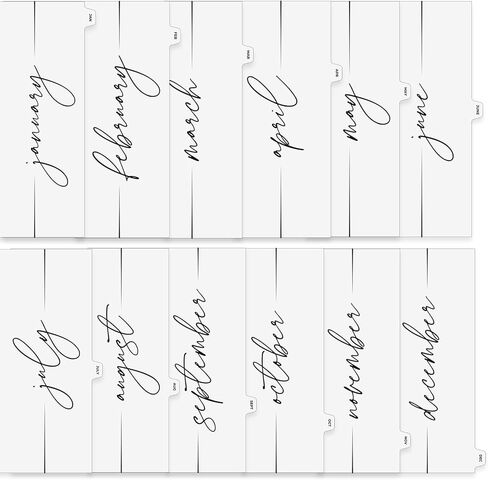 january
JAN
february
FEB
march
MAR
april
APR
may
MAY
june
JUNE
july
JULY
august
AUG
september
SEPT
october
OCT
november
NOV
december
DEC